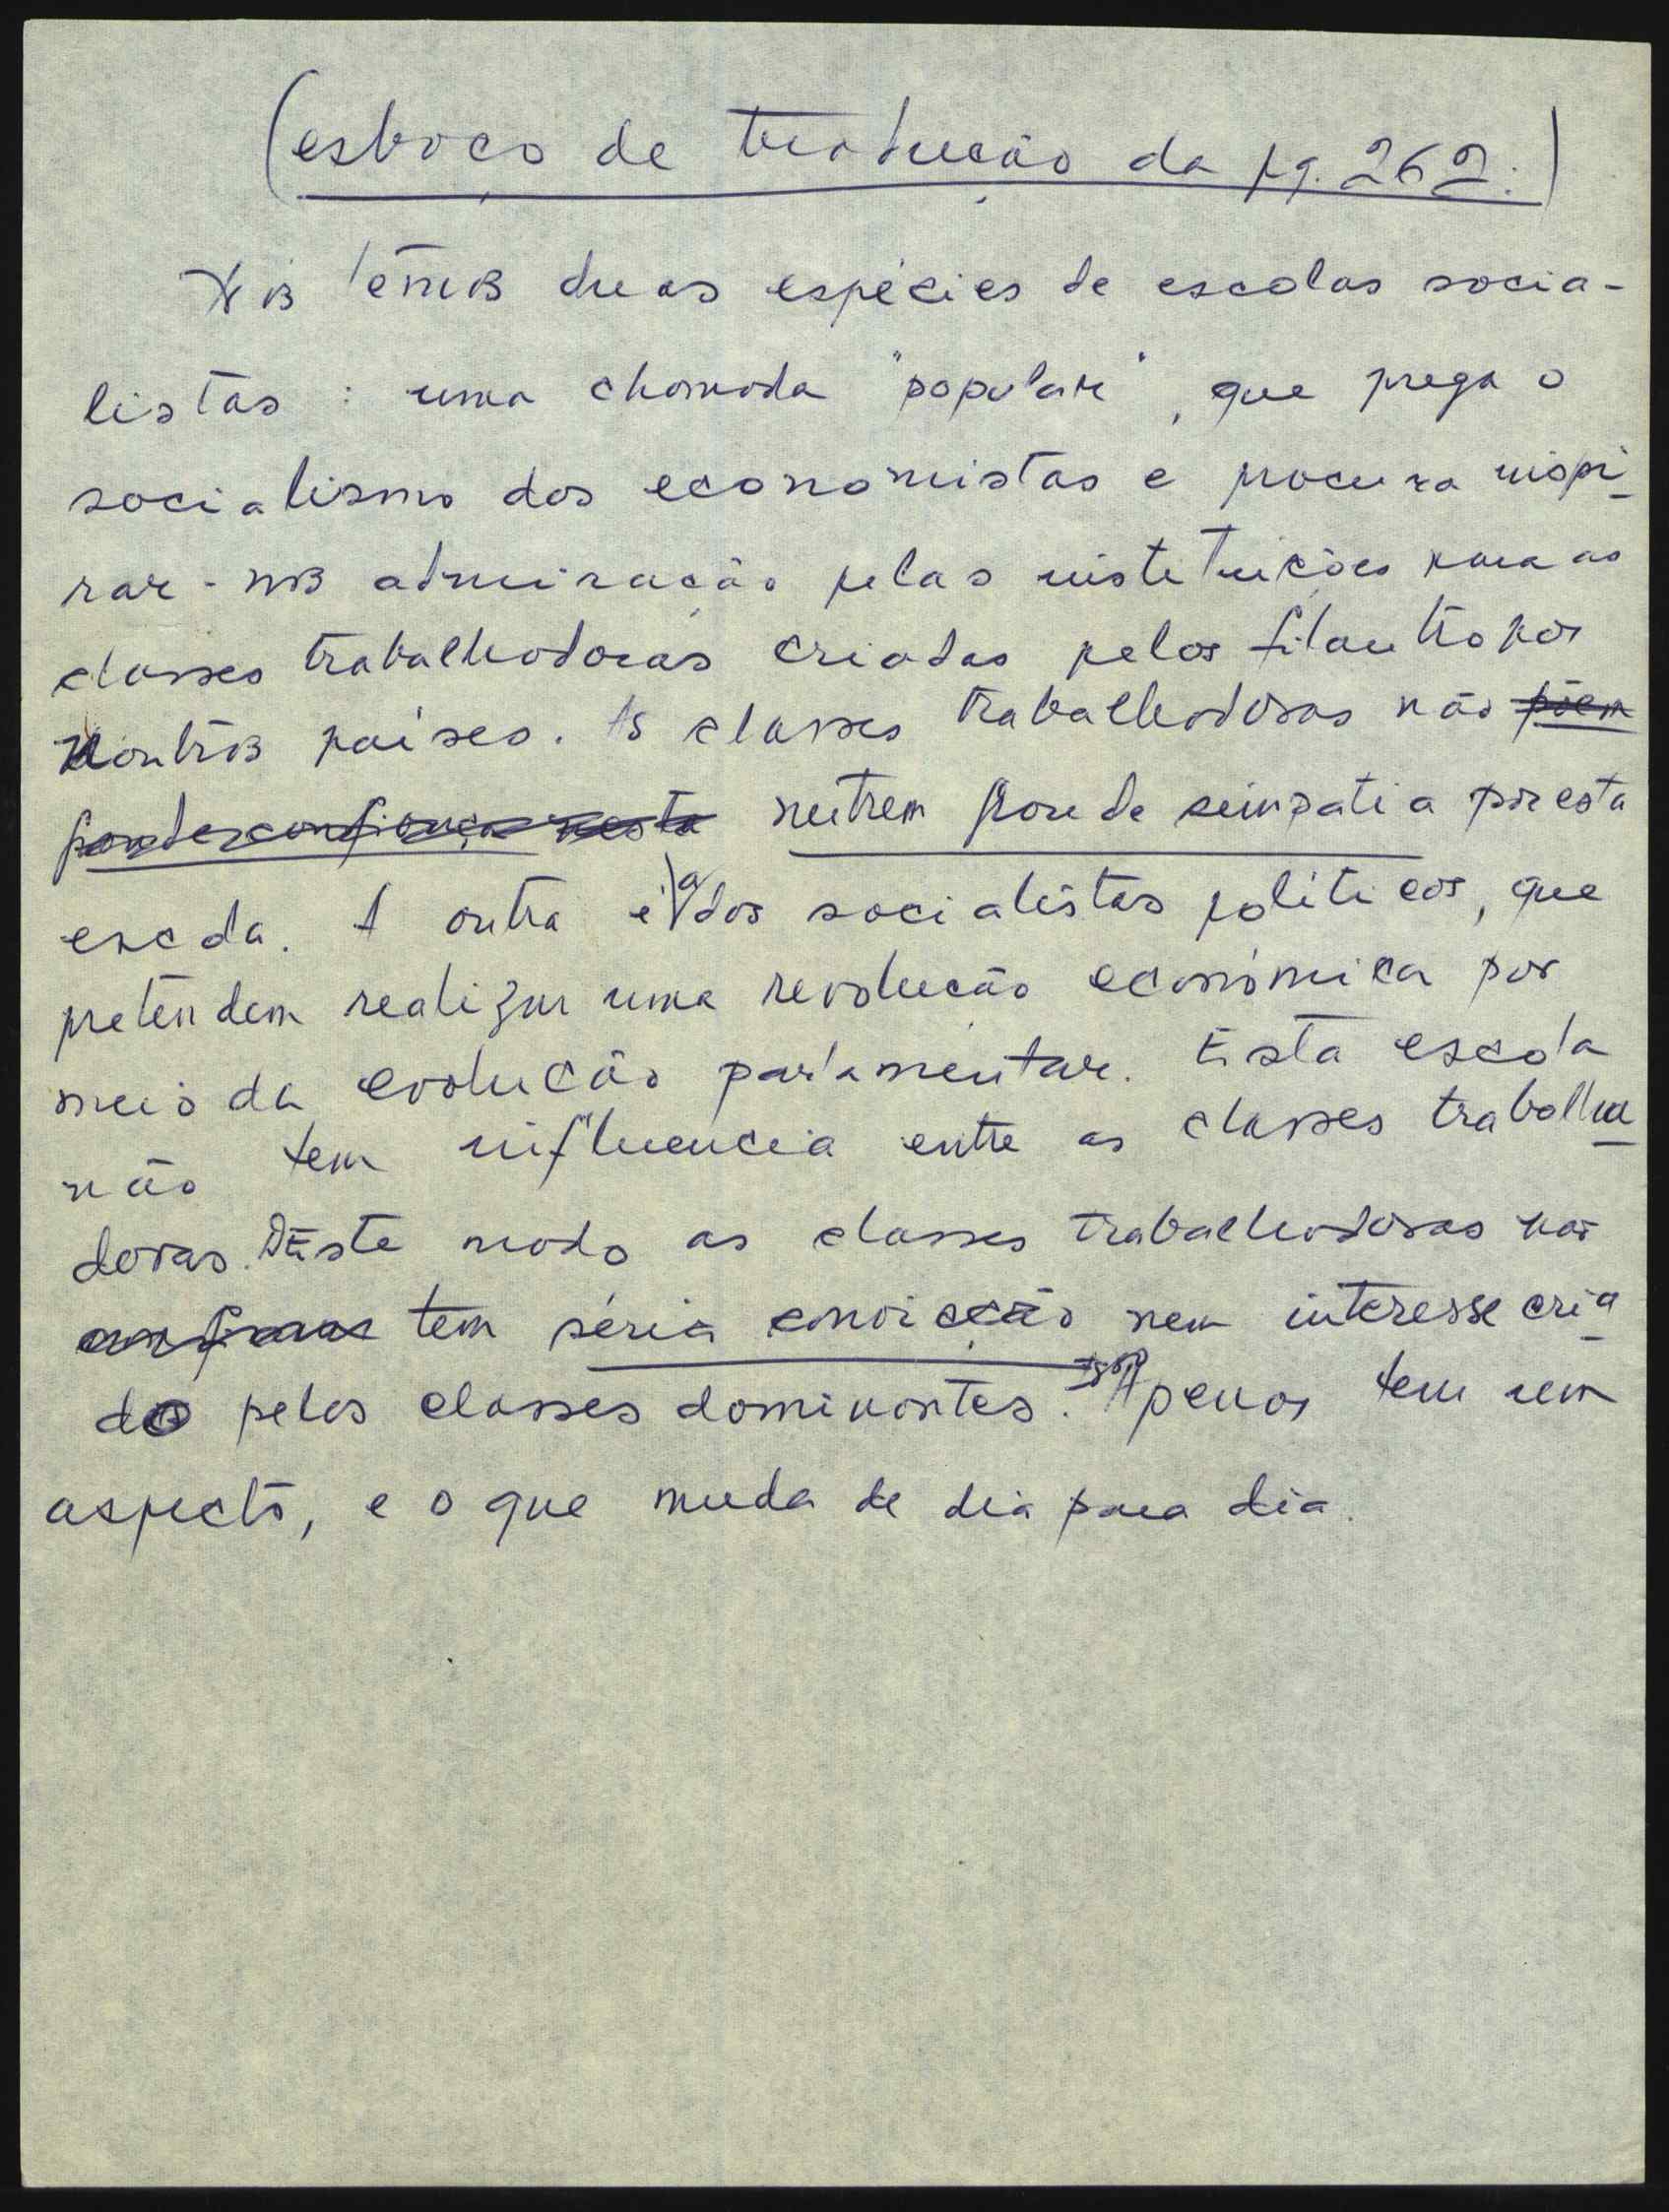 (esboço de tradução da pg. 262.)
Nós têmos duas espécies de escolas socia-
listas : uma chamada "popular", que prega o
socialismo dos economistas e procura inspi-
rar-nos admiração pelas instituições para as
classes trabalhadoras criadas pelos filantropos
doutros países. As classes trabalhadoras não põem
grande confiança nesta nutrem grande simpatia por esta
escola. A outra é a dos socialistas políticos, que
pretendem realizar uma revolução económica por
meio da evolução parlamentar. Esta escola
não tem influencia entre as classes trabalha
doras. Dêste modo as classes trabalhadoras não
tem séria convicção nem interesse cria
do pelas classes dominantes. Apenas tem um
aspecto, e o que muda de dia para dia.